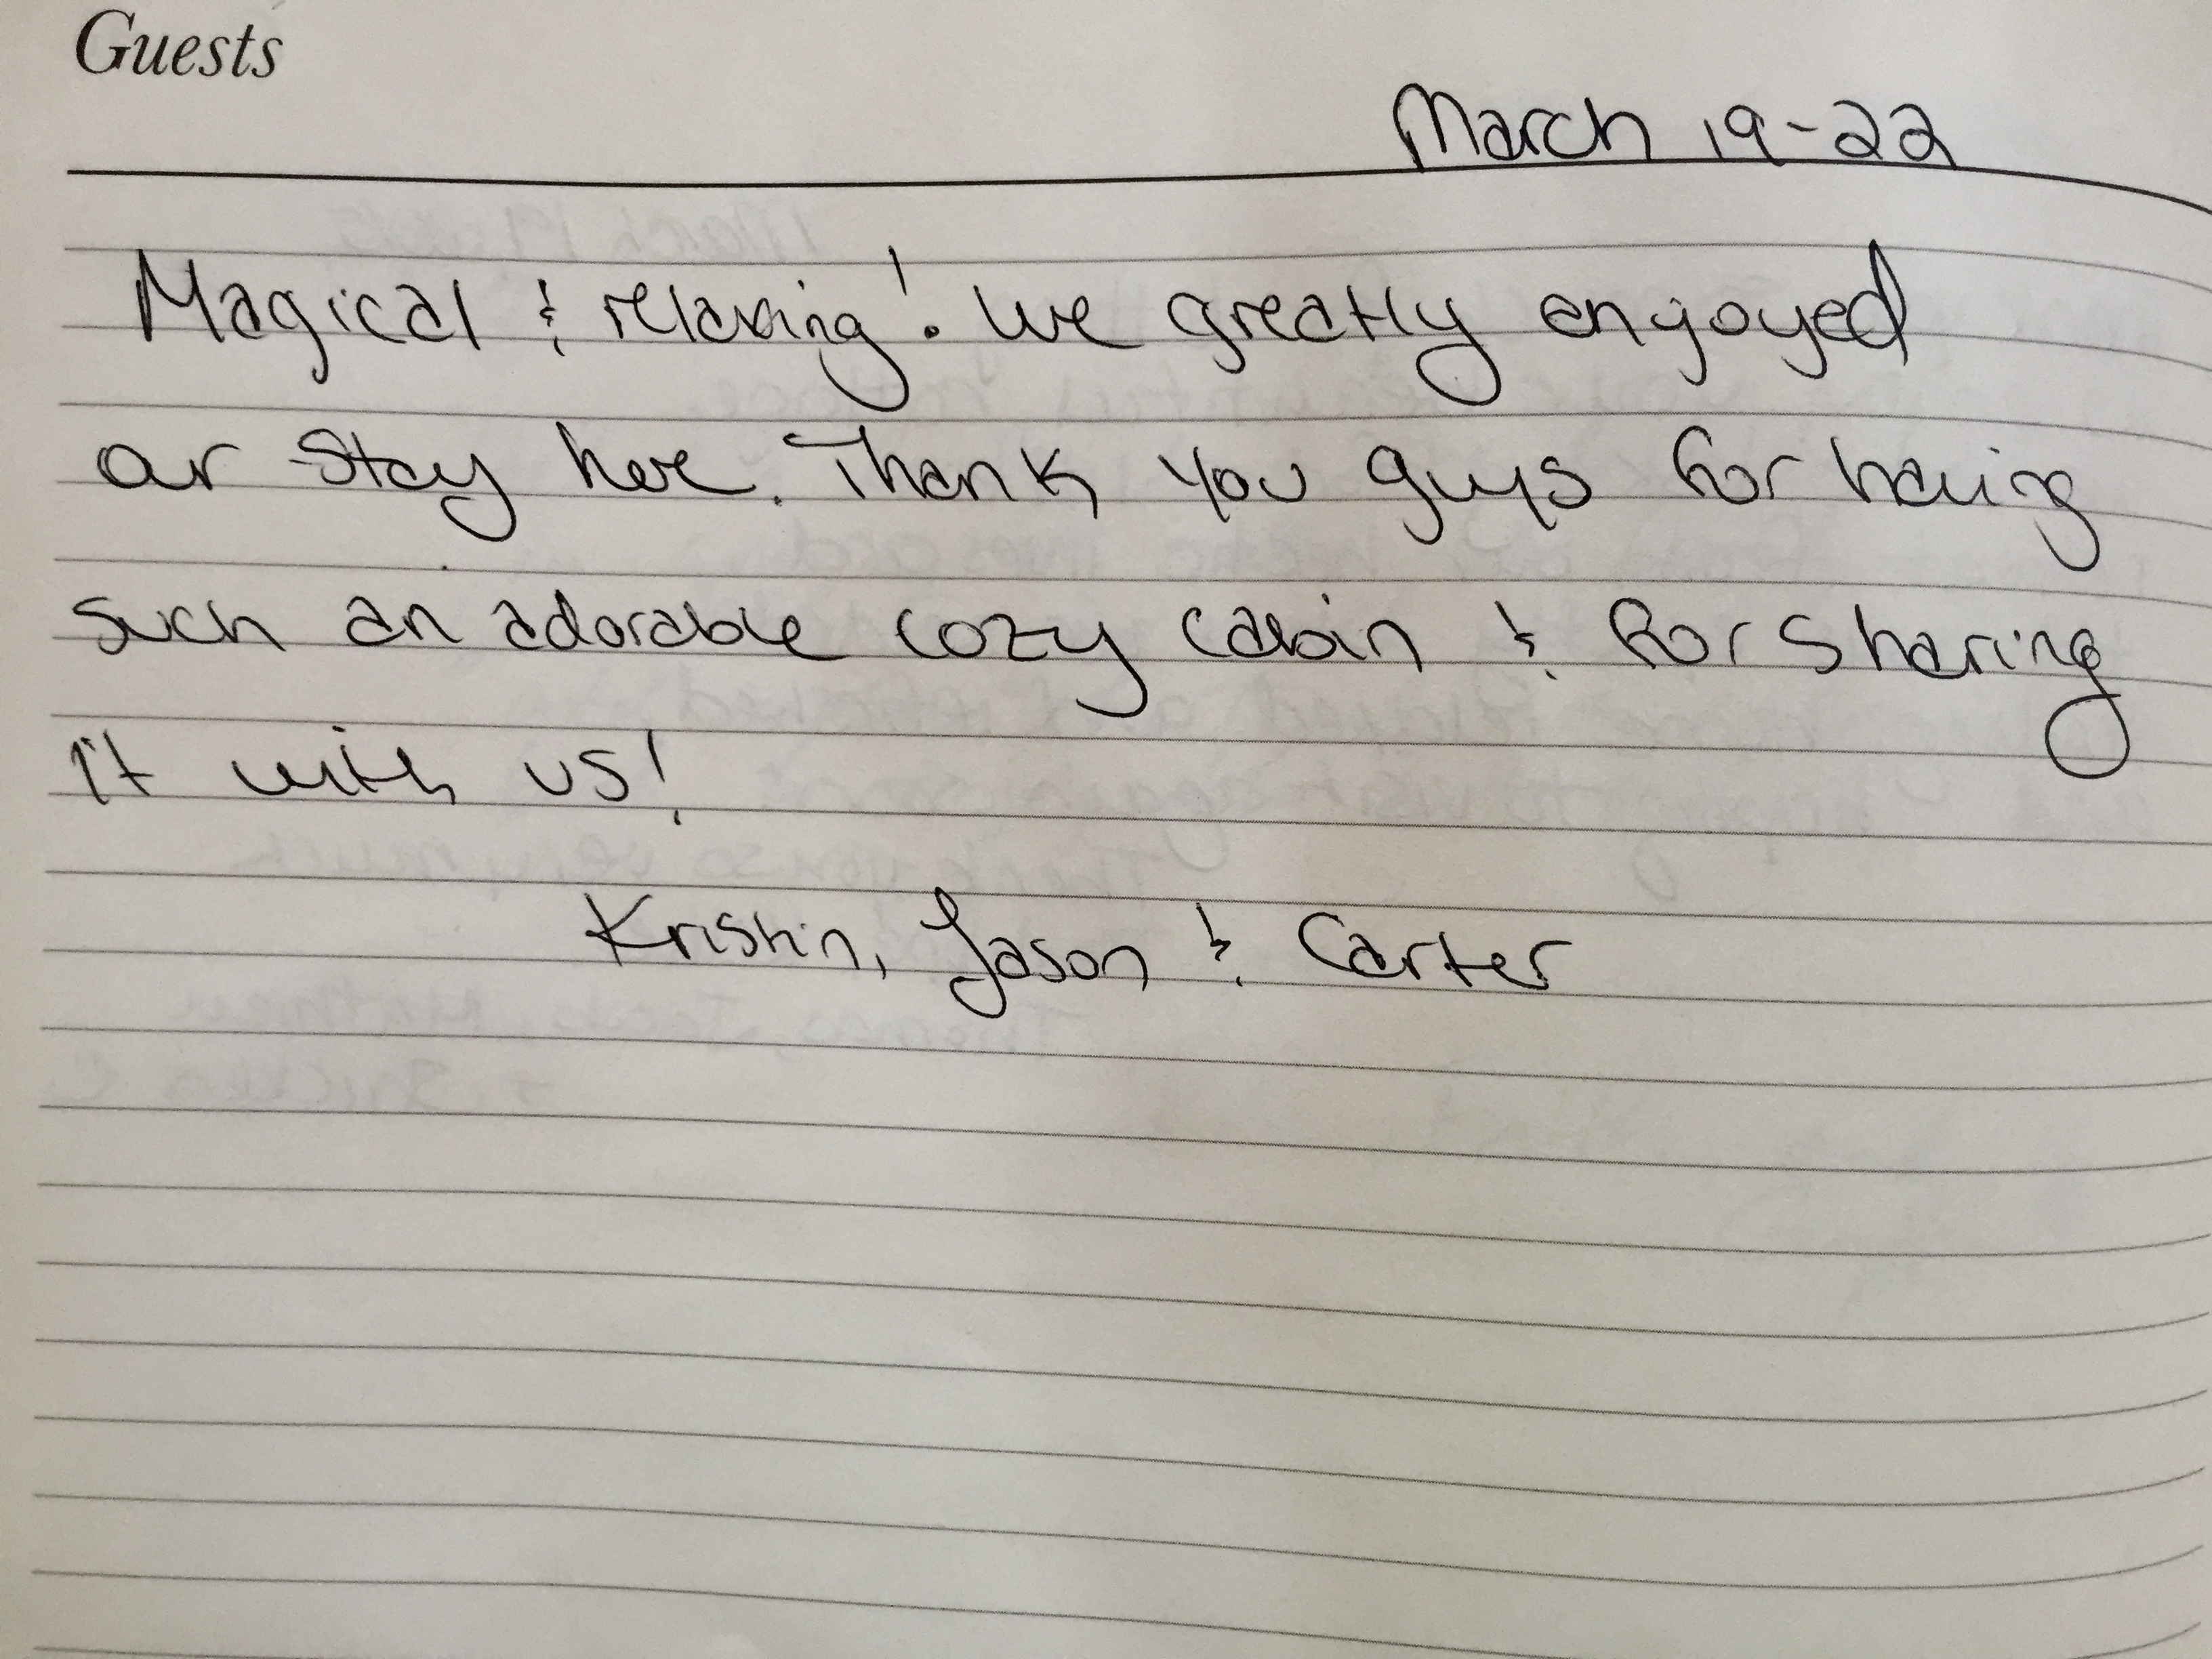 Guests
March 19-22
Magical & relaxing! We greatly enjoyed
our stay here. Thank you guys for having
such an adorable cozy cabin & for sharing
it with us!
Kristin, Jason & Carter